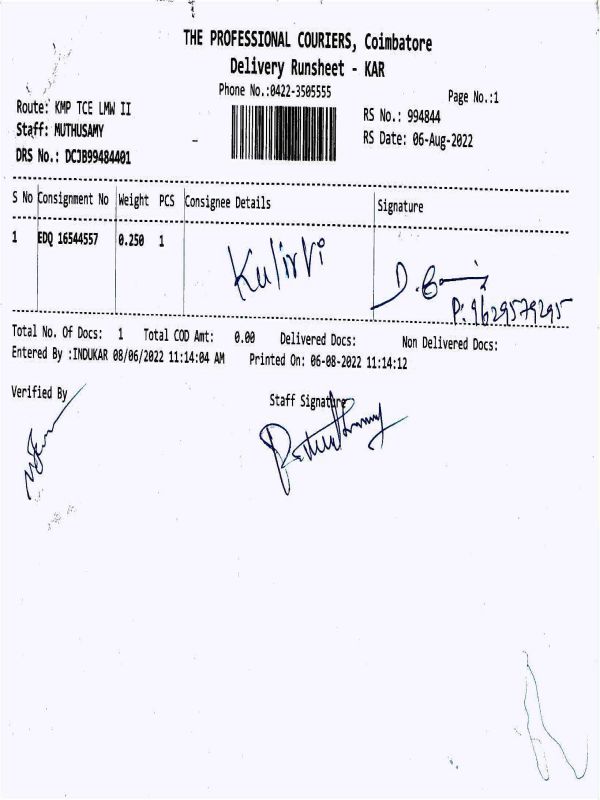 THE PROFESSIONAL COURIERS, Coimbatore
Delivery Runsheet - KAR
Phone No.:0422-3505555
Page No.:1
Route: KMP TCE LMW II
RS No.: 994844
Staff: MUTHUSAMY
RS Date: 06-Aug-2022
DRS No.: DCJB99484401
S No Consignment No Weight PCS Consignee Details Signature
1 EDQ 16544557 0.250 1
P: 9629579295
Total No. Of Docs: 1 Total COD Amt: 0.00 Delivered Docs: Non Delivered Docs:
Entered By :INDUKAR 08/06/2022 11:14:04 AM Printed On: 06-08-2022 11:14:12
Verified By
Staff Signature